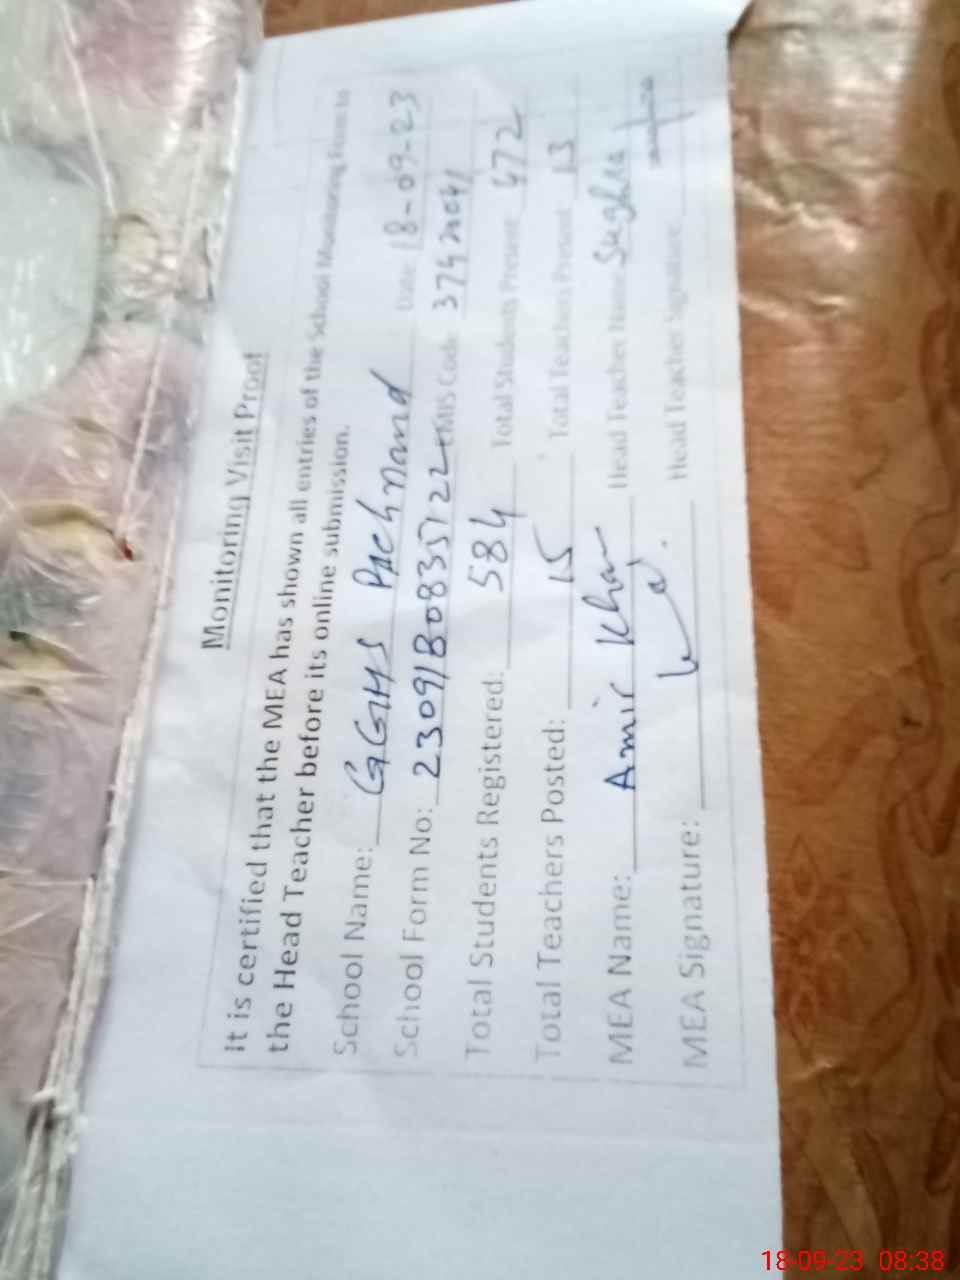 Monitoring Visit Proof
It is certified that the MEA has shown all entries of the School Monitoring Form to
the Head Teacher before its online submission.
School Name: GGHS Pachnand Date 18-09-23
School Form No: EMIS Code 37420041
Total Students Registered: 584 Total Students Present 472
Total Teachers Posted: 15 Total Teachers Present 13
MEA Name: Amir Khan Head Teacher Name Sughra
MEA Signature: Head Teacher Signature
18-09-23 08:38